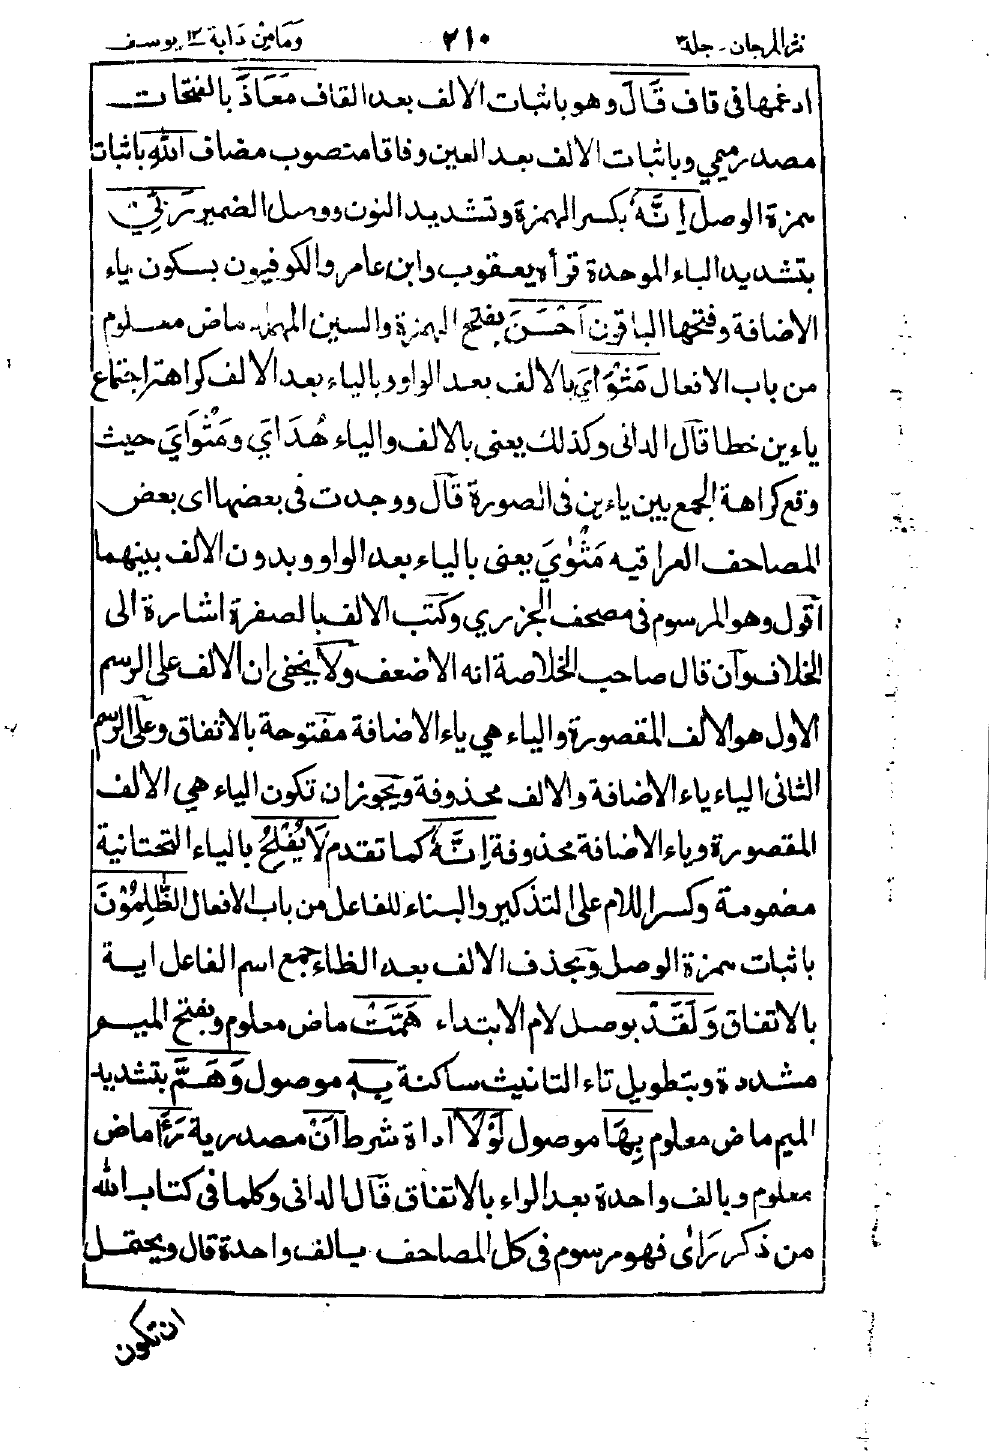 نثر المرجان - جلد ۳ ۲۱۰ وَمَا مِنْ دَابة ۱۲ يوسف
ادغمها فى قاف قَالَ وهو باثبات الالف بعد القاف مَعَاذَ بالفتحات
مصدر ميمي وباثبات الالف بعد العين وفاقا منصوب مضاف اللّٰهِ باثبات
همزة الوصل اِنَّهٗ بكسر الهمزة وتشديد النون ووصل الضمير رَبِّيْ
بتشديد الباء الموحدة قرأه يعقوب وابن عامر والكوفيون بسكون ياء
الاضافة وفتحها الباقون اَحْسَنَ بفتح الهمزة والسين المهملة ماض معلوم
من باب الافعال مَثْوَايَ بالالف بعد الواو وبالياء بعد الالف كراهة اجتماع
ياءين خطا قال الدانى وكذلك يعنى بالالف والياء هُدَايَ ومَثْوَايَ حيث
وقع كراهة الجمع بين ياءين فى الصورة قال ووجدت فى بعضها اى بعض
المصاحف العراقيه مَثْوٰيَ يعنى بالياء بعد الواو وبدون الالف بينهما
اقول وهو المرسوم فى مصحف الجزري وكتب الالف بالصفرة اشارة الى
الخلاف وان قال صاحب الخلاصة انه الاضعف ولا يخفى ان الالف على الرسم
الاول هو الالف المقصورة والياء هي ياء الاضافة مفتوحة بالاتفاق وعلى الرسم
الثانى الياء ياء الاضافة والالف محذوفة ويجوز ان تكون الياء هي الالف
المقصورة وياء الاضافة محذوفة اِنَّهٗ كما تقدم لَا يُفْلِحُ بالياء التحتانية
مضمومة وكسر اللام على التذكير والبناء للفاعل من باب الافعال الظّٰلِمُوْنَ
باثبات همزة الوصل وبحذف الالف بعد الظاء جمع اسم الفاعل اية
بالاتفاق وَلَقَدْ بوصل لام الابتداء هَمَّتْ ماض معلوم وبفتح الميم
مشددة وبتطويل تاء التانيث ساكنة بِهٖ موصول وَهَمَّ بتشديد
الميم ماض معلوم بِهَا موصول لَوْلَا اداة شرط اَنْ مصدرية رَءَا ماض
معلوم وبالف واحدة بعد الراء بالاتفاق قال الدانى وكلما فى كتاب الله
من ذكر رَاٰى فهو مرسوم فى كل المصاحف بالف واحدة قال ويحتمل
ان تكون